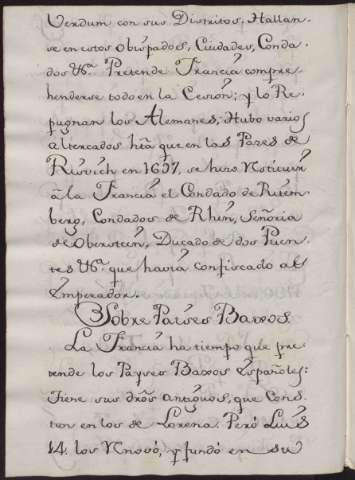 Verdum con sus Distritos, Hallan-
se en estos Obispados, Ciudades, Conda-
dos &ª. Pretende Francia compre-
henderse todo en la Cesion; y lo Re-
pugnan los Alemanes; Hubo varios
altercados hta que en las Pazes de
Risvich en 1697, se hizo
â la Francia el Condado de
berg, Condados de Rhin, Señoria
de Oberstein, Ducado de dos Puen-
tes &ª. que havia confiscado al
Emperador.
Sobre Paises Baxos.
La Francia ha tiempo que pre-
tende los Payses Baxos Españoles:
Tiene sus dros antiguos, que Cons-
ten en los de Lorena. Pero Luis
14. los Ynovó, y fundó en su